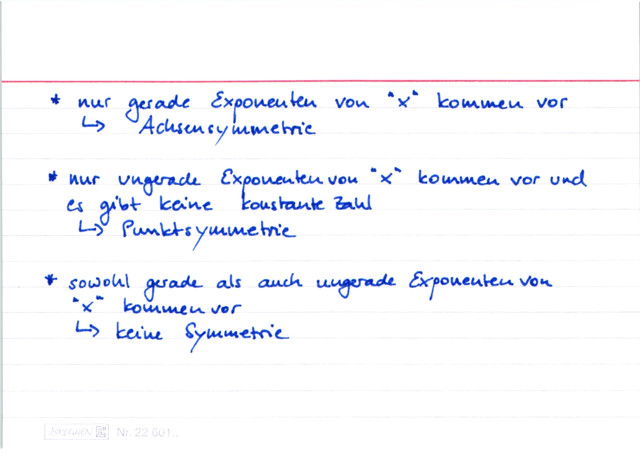 * nur gerade Exponenten von "x" kommen vor
↳ Achsensymmetrie
* nur ungerade Exponenten von "x" kommen vor und
es gibt keine konstante Zahl
↳ Punktsymmetrie
* sowohl gerade als auch ungerade Exponenten von
"x" kommen vor
↳ keine Symmetrie
Nr. 22 601..